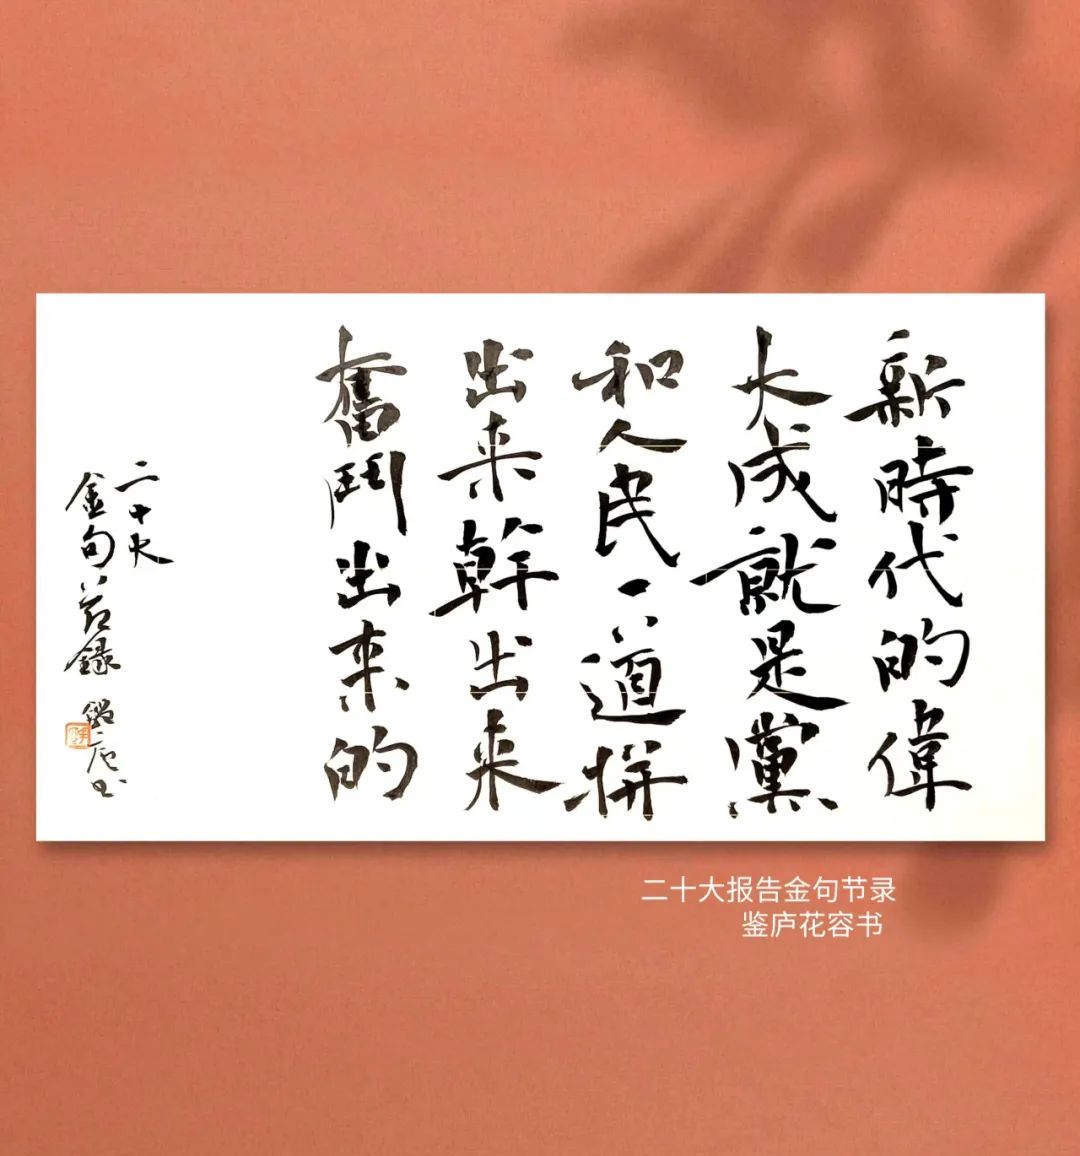 新時代的偉
大成就是黨
和人民一道拼
出来幹出来
奮鬥出来的
二十大
金句节録
鑑庐书
二十大报告金句节录
鉴庐花容书